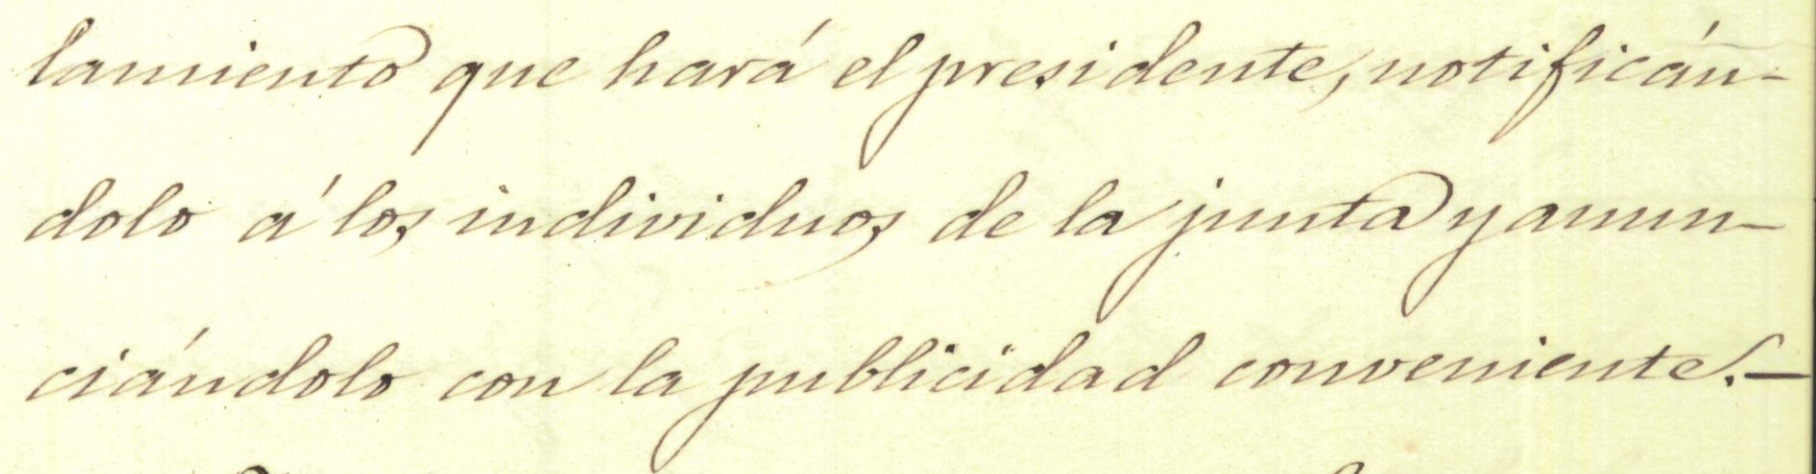 lamiento que hará el presidente, notificán-
dolo á los individuos de la junta y anun-
ciándolo con la publicidad conveniente.—